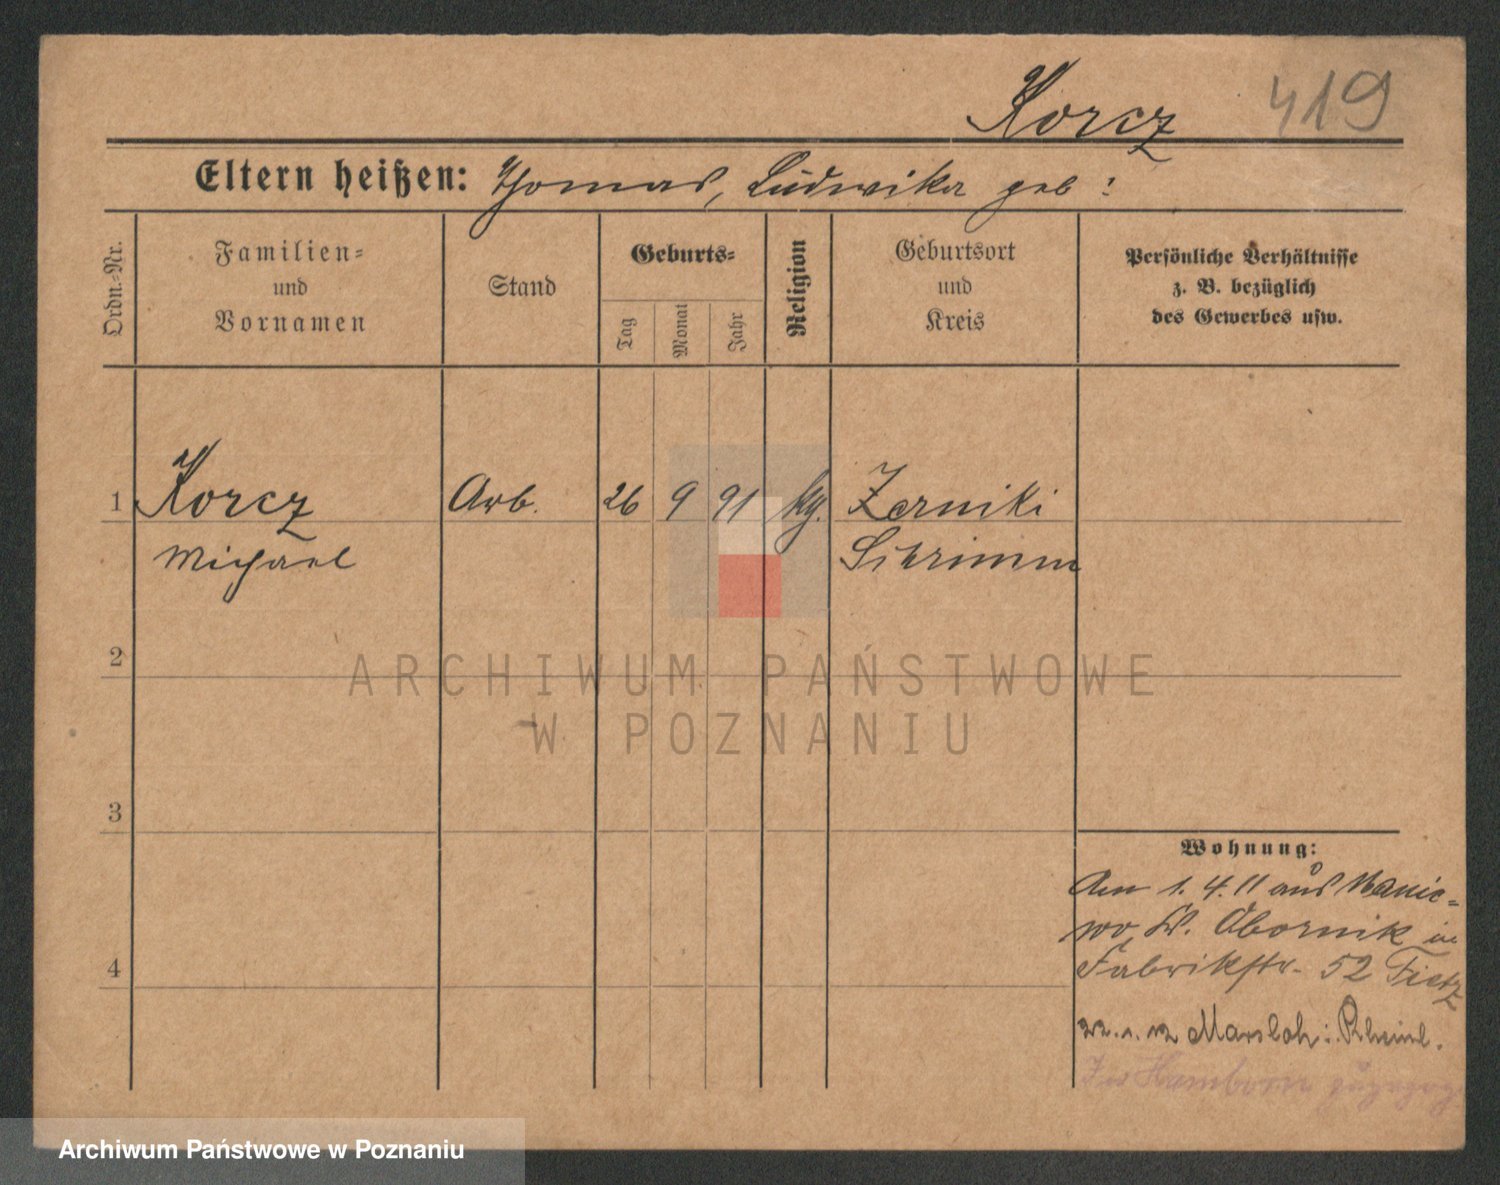 Korcz 419
Eltern heißen: Thomas, Ludwika geb:
Ordn.-Nr.
Familien-
und
Vornamen
Stand
Geburts-
Tag
Monat
Jahr
Religion
Geburtsort
und
Kreis
Persönliche Verhältnisse
z. B. bezüglich
des Gewerbes usw.
1 Korcz Arb. 26 9 91 Zerniki
Michael Schrimm
2
ARCHIWUM PAŃSTWOWE
W POZNANIU
3
Wohnung:
Am 1. 4. 11 aus Manie-
wo, Obornik in
4 Fabrikstr. 52 Tietz
22. 1. 12 Marsloh i. Rheinl.
In Hamborn
Archiwum Państwowe w Poznaniu